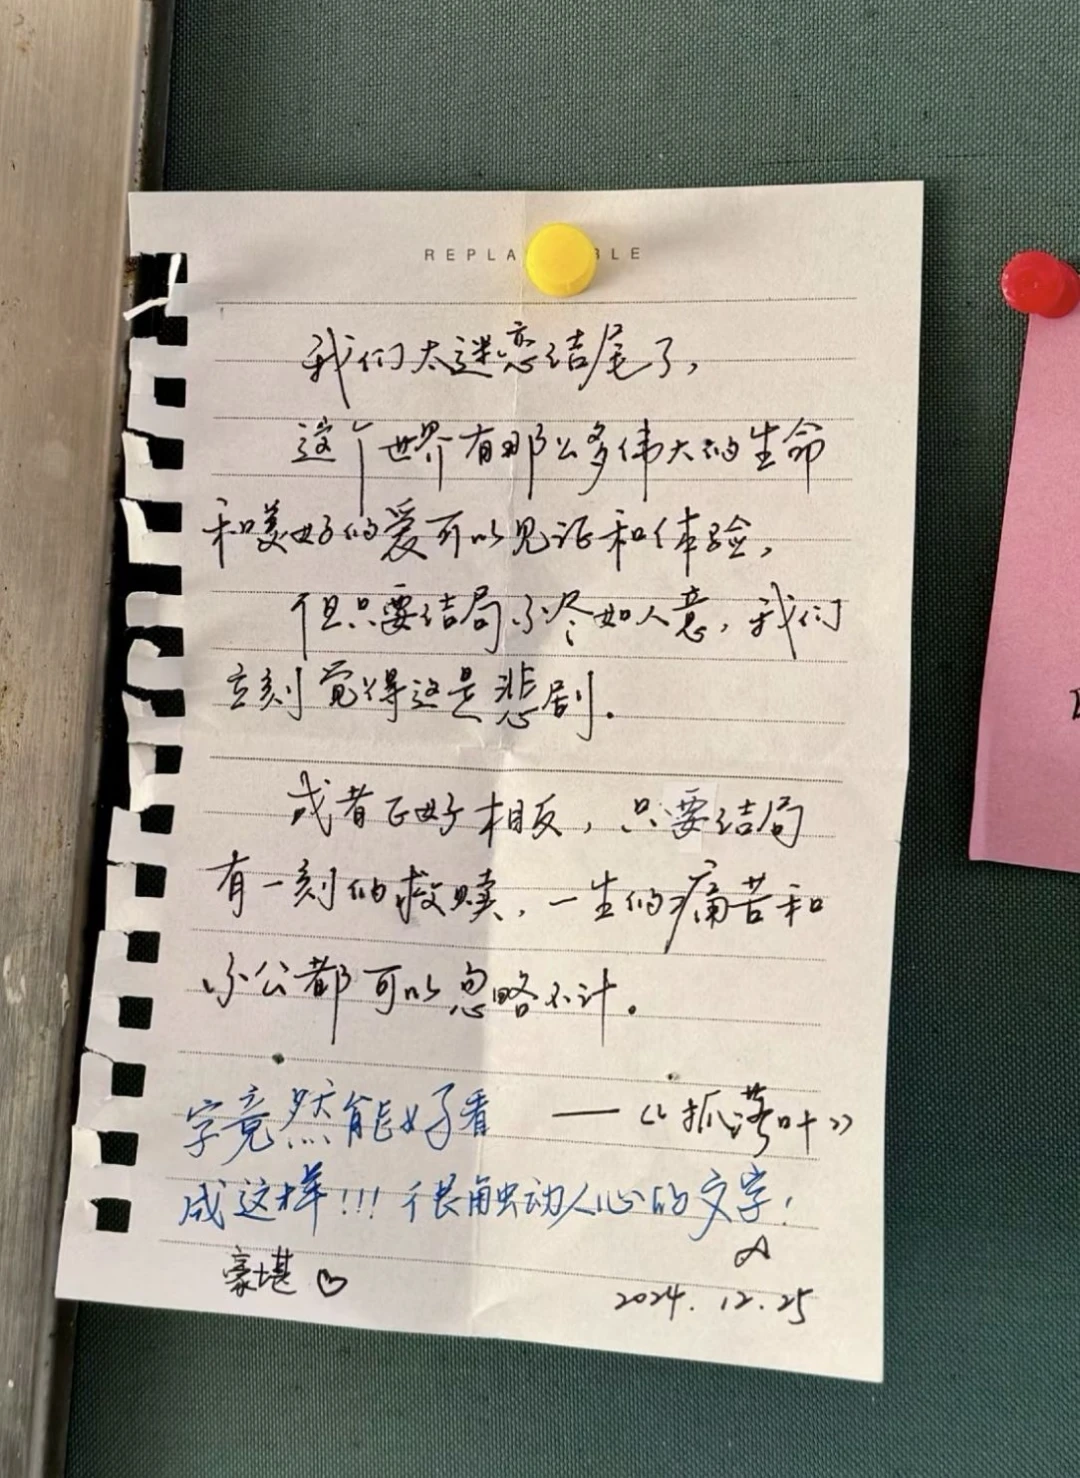 我们太迷恋结尾了,
这个世界有那么多伟大的生命
和美好的爱可以见证和体验,
但只要结局不尽如人意,我们
立刻觉得这是悲剧.
或者正好相反,只要结局
有一刻的救赎,一生的痛苦和
不公都可以忽略不计。
——《抓落叶》
字竟然能好看
成这样!!!很触动人心的文字!
豪堪♡
2024.12.25